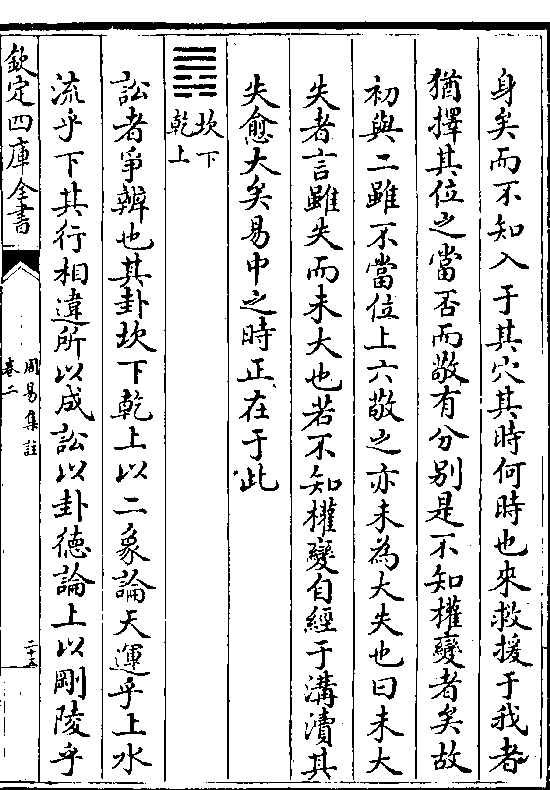 身矣而不知入于其穴其時何時也來救援于我者
猶擇其位之當否而敬有分別是不知權變者矣故
初與二雖不當位上六敬之亦未為大失也曰未大
失者言雖失而未大也若不知權變自經于溝瀆其
失愈大矣易中之時正在于此
坎下
乾上
訟者爭辨也其卦坎下乾上以二象論天運乎上水
流乎下其行相違所以成訟以卦德論上以剛陵乎
欽定四庫全書
周易集註
卷二
三十五